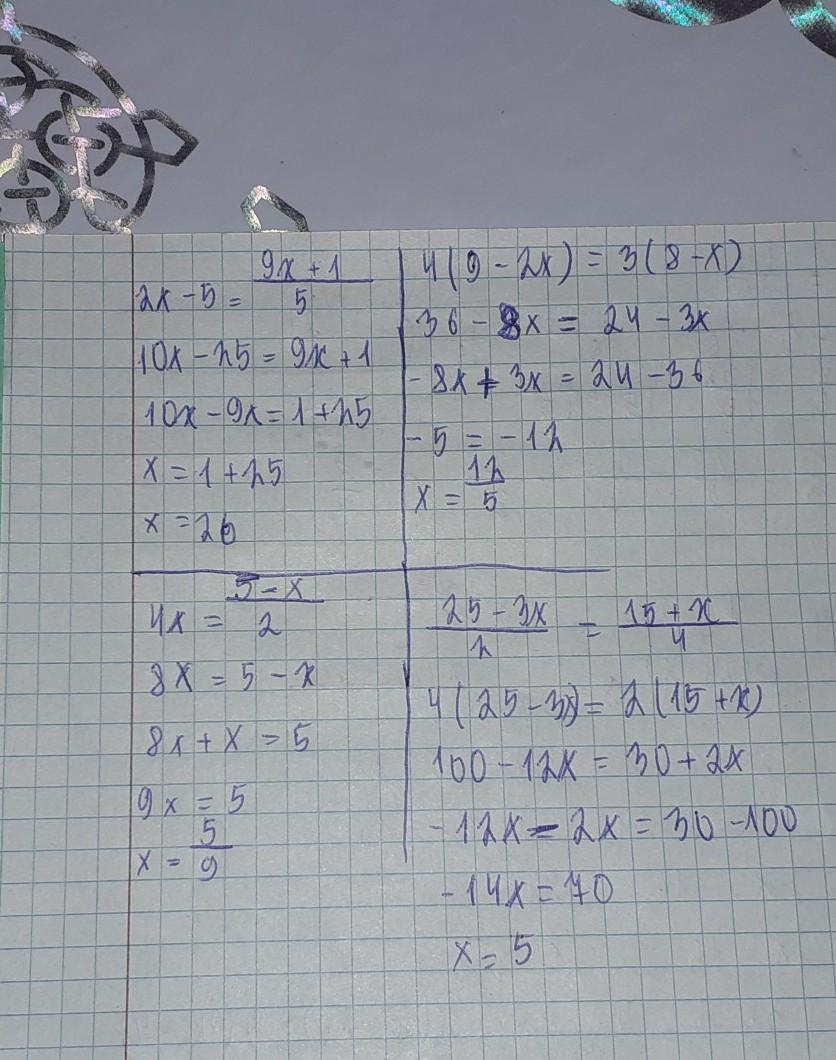 2x - 5 = \frac{9x + 1}{5}
10x - 25 = 9x + 1
10x - 9x = 1 + 25
x = 1 + 25
x = 26
4(9 - 2x) = 3(8 - x)
36 - 8x = 24 - 3x
- 8x + 3x = 24 - 36
- 5 = - 12
x = \frac{12}{5}
4x = \frac{5 - x}{2}
8x = 5 - x
8x + x = 5
9x = 5
x = \frac{5}{9}
\frac{25 - 3x}{2} = \frac{15 + x}{4}
4(25 - 3x) = 2(15 + x)
100 - 12x = 30 + 2x
- 12x - 2x = 30 - 100
- 14x = 70
x = 5